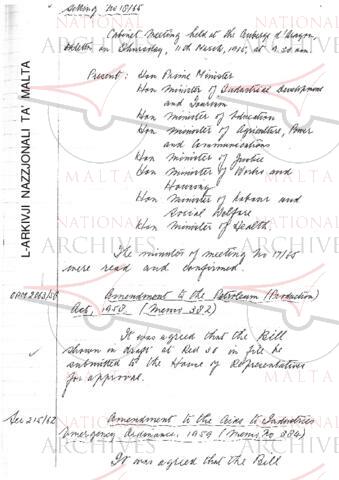 Meeting No 18/65
Cabinet Meeting held at the Auberge d'Aragon,
Valletta on Thursday, 11th March, 1965, at 9.30 am.
Present: Hon Prime Minister
Hon Minister of Industrial Development
and Tourism
Hon Minister of Education
Hon Minister of Agriculture, Power
and Communications
Hon Minister of Justice
Hon Minister of Works and
Housing
Hon Minister of Labour and
Social Welfare
Hon Minister of Health.
The minutes of meeting No 17/65
were read and confirmed.
OPM 2063/58
Amendment to the Petroleum (Production)
Act, 1958 (Memo 382)
It was agreed that the Bill
shown in draft at Red 30 in file be
submitted to the House of Representatives
for approval.
Sec 215/62
Amendment to the Aids to Industries
Emergency Ordinance, 1959 (Memo No 384)
It was agreed that the Bill
L-ARKIVJI NAZZJONALI TA' MALTA
NATIONAL
ARCHIVES
MALTA